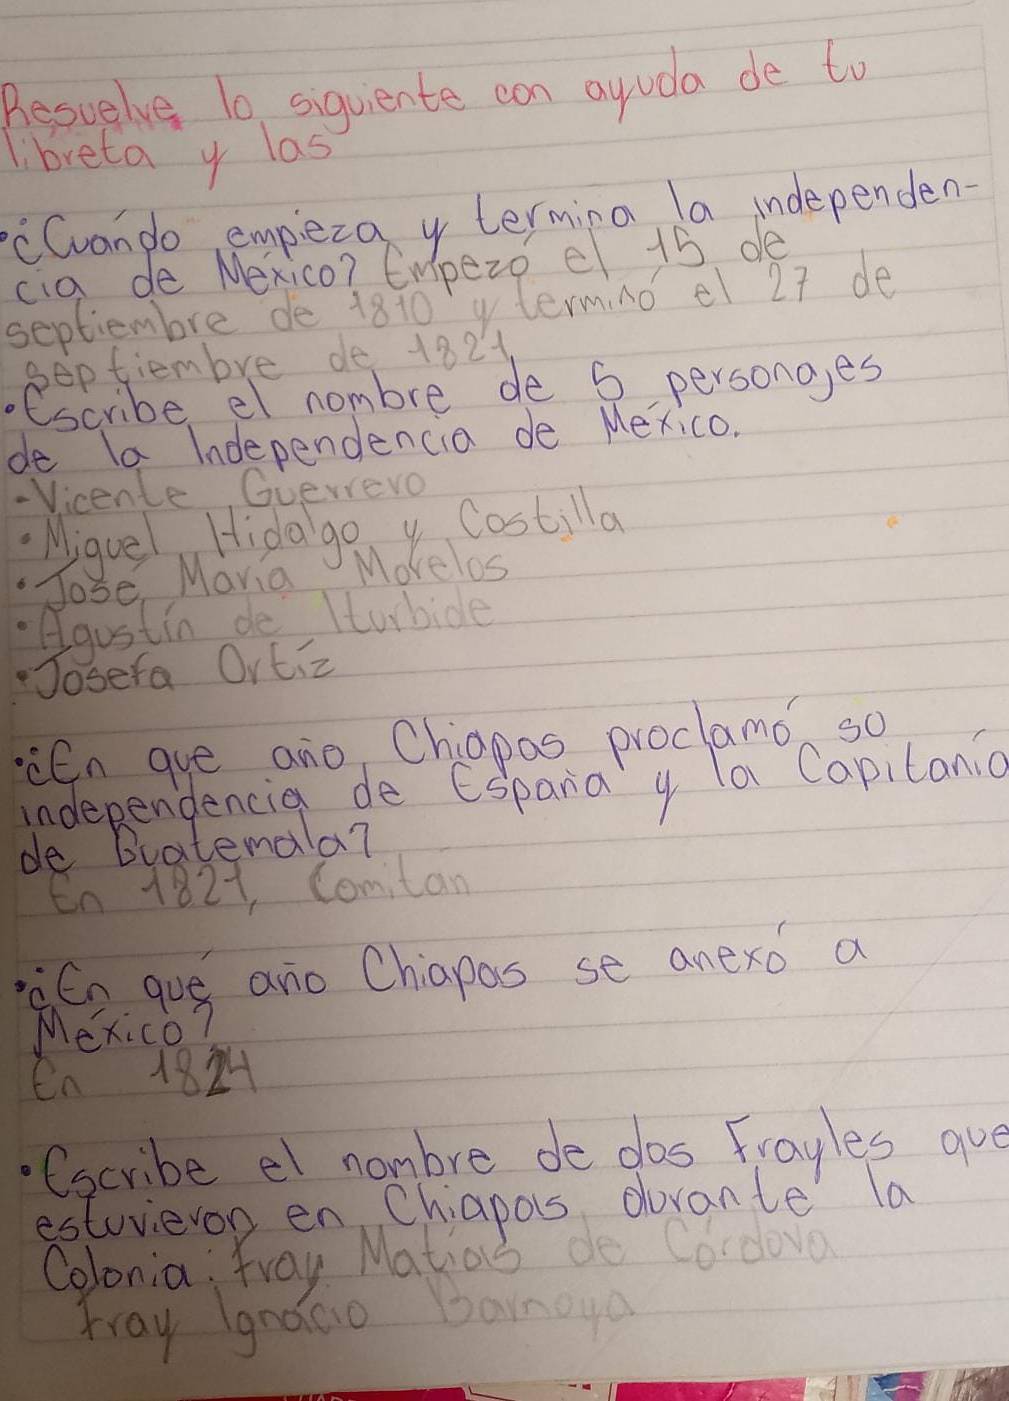 Resuelve lo siguiente con ayuda de tu
libreta y las
• ¿Cuándo empieza y termina la independen-
cia de México? Empezó el 15 de
septiembre de 1810 y terminó el 27 de
septiembre de 1821
• Escribe el nombre de 5 personajes
de la Independencia de México.
- Vicente Guerrero
• Miguel Hidalgo y Costilla
• José María Morelos
• Agustín de Iturbide
• Josefa Ortíz
• ¿En que año Chiapas proclamó so
independencia de España y la Capitanía
de Guatemala?
En 1821, Comitan
• ¿En qué año Chiapas se anexó a
México?
En 1824
• Escribe el nombre de dos Frayles que
estuvieron en Chiapas durante la
Colonia: fray Matias de Córdova
fray Ignacio Barnoya